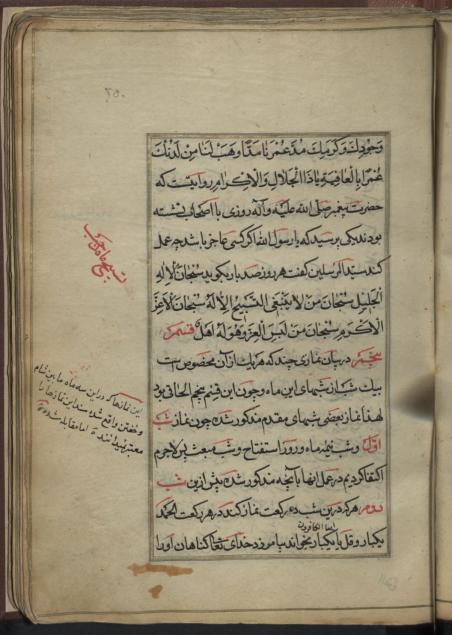 وجودك وكرمك مدّ عمرنا مدّا وهب لنا من لدنك
عمرا بالعافية ياذا الجلال والاكرام روايتست كه
حضرت پيغمبر صلى الله عليه وآله روزى با اصحاب نشسته
بودند يكى پرسيد كه يا رسول الله اكر كسى عاجز باشد چه عمل
كند سيد المرسلين كفت هر روز صد بار بكويد سبحان الاله
الجليل سبحان من لا ينبغى التسبيح الا له سبحان الاعز
الاكرم سبحان من لبس العز وهو له اهل قسم
پنجم در بيان نمازى چند كه هر يك از آن مخصوصست
بيك شب از شبهاى اين ماه وچون اين قسم پنجم الحاقى بود
لهذا نماز بعضى شبهاى مقدم مذكور شده چون نماز شب
اوّل وشب نيمه ماه وروز استفتاح وشب مبعث پس لاجرم
اكتفا كرديم در عمل انها بآنچه مذكور شده پيش ازين شب
دوم هر كه درين شب ده ركعت نماز كند در هر ركعت الحمد
يكبار وقل يا ايها الكافرون يكبار بخواند بيامرزد خداى تعالى كناهان اورا
اين نمازها كه در اين سه ماه